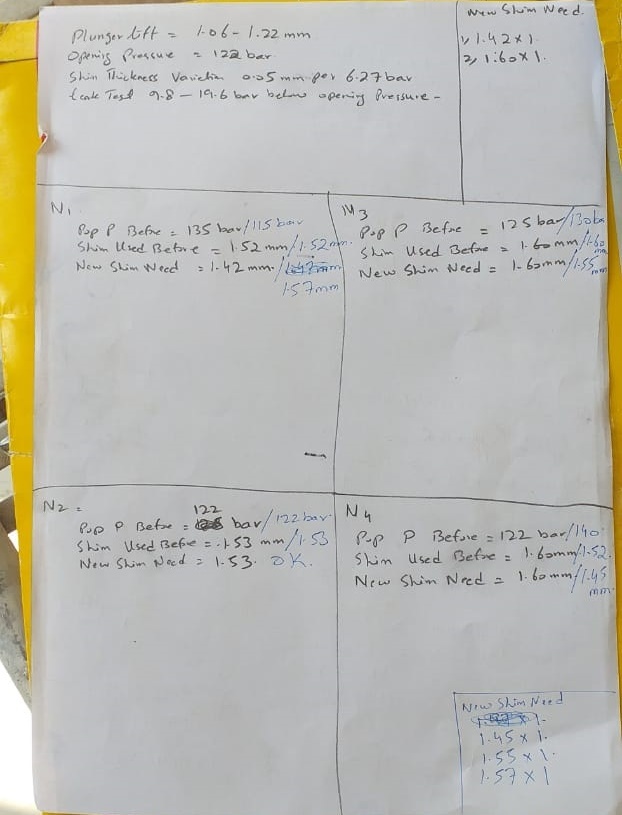 Plunger lift = 1.06 - 1.22 mm
Opening Pressure = 122 bar
Shim Thickness Variation 0.05 mm per 6.27 bar
Leak Test 9.8 - 19.6 bar below opening Pressure -
New Shim Need.
1, 1.42 x 1.
2, 1.60 x 1.
N1
Pop P Before = 135 bar/115 bar
Shim Used Before = 1.52 mm/1.52 mm.
New Shim Need = 1.42 mm./
1.57 mm
N3
Pop P Before = 125 bar/130 ba
Shim Used Before = 1.60 mm/1.60 mm
New Shim Need = 1.60 mm/1.55 mm
N2 =
122
Pop P Before = bar/122 bar.
Shim Used Before = .1.53 mm/1.53
New Shim Need = 1.53. OK.
N4
Pop P Before = 122 bar/140
Shim Used Before = 1.60 mm/1.52.
New Shim Need = 1.60 mm/1.45 mm.
New Shim Need
x 1.
1.45 x 1.
1.55 x 1.
1.57 x 1